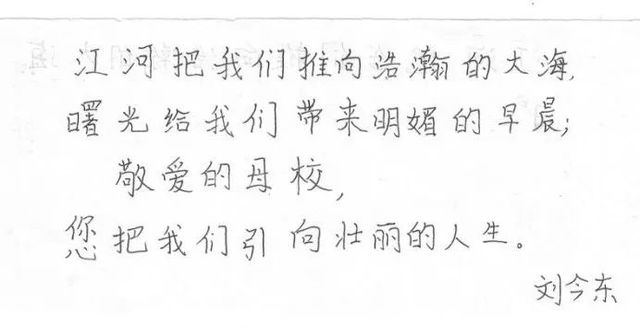 江河把我们推向浩瀚的大海,
曙光给我们带来明媚的早晨;
敬爱的母校,
您把我们引向壮丽的人生。
刘今东